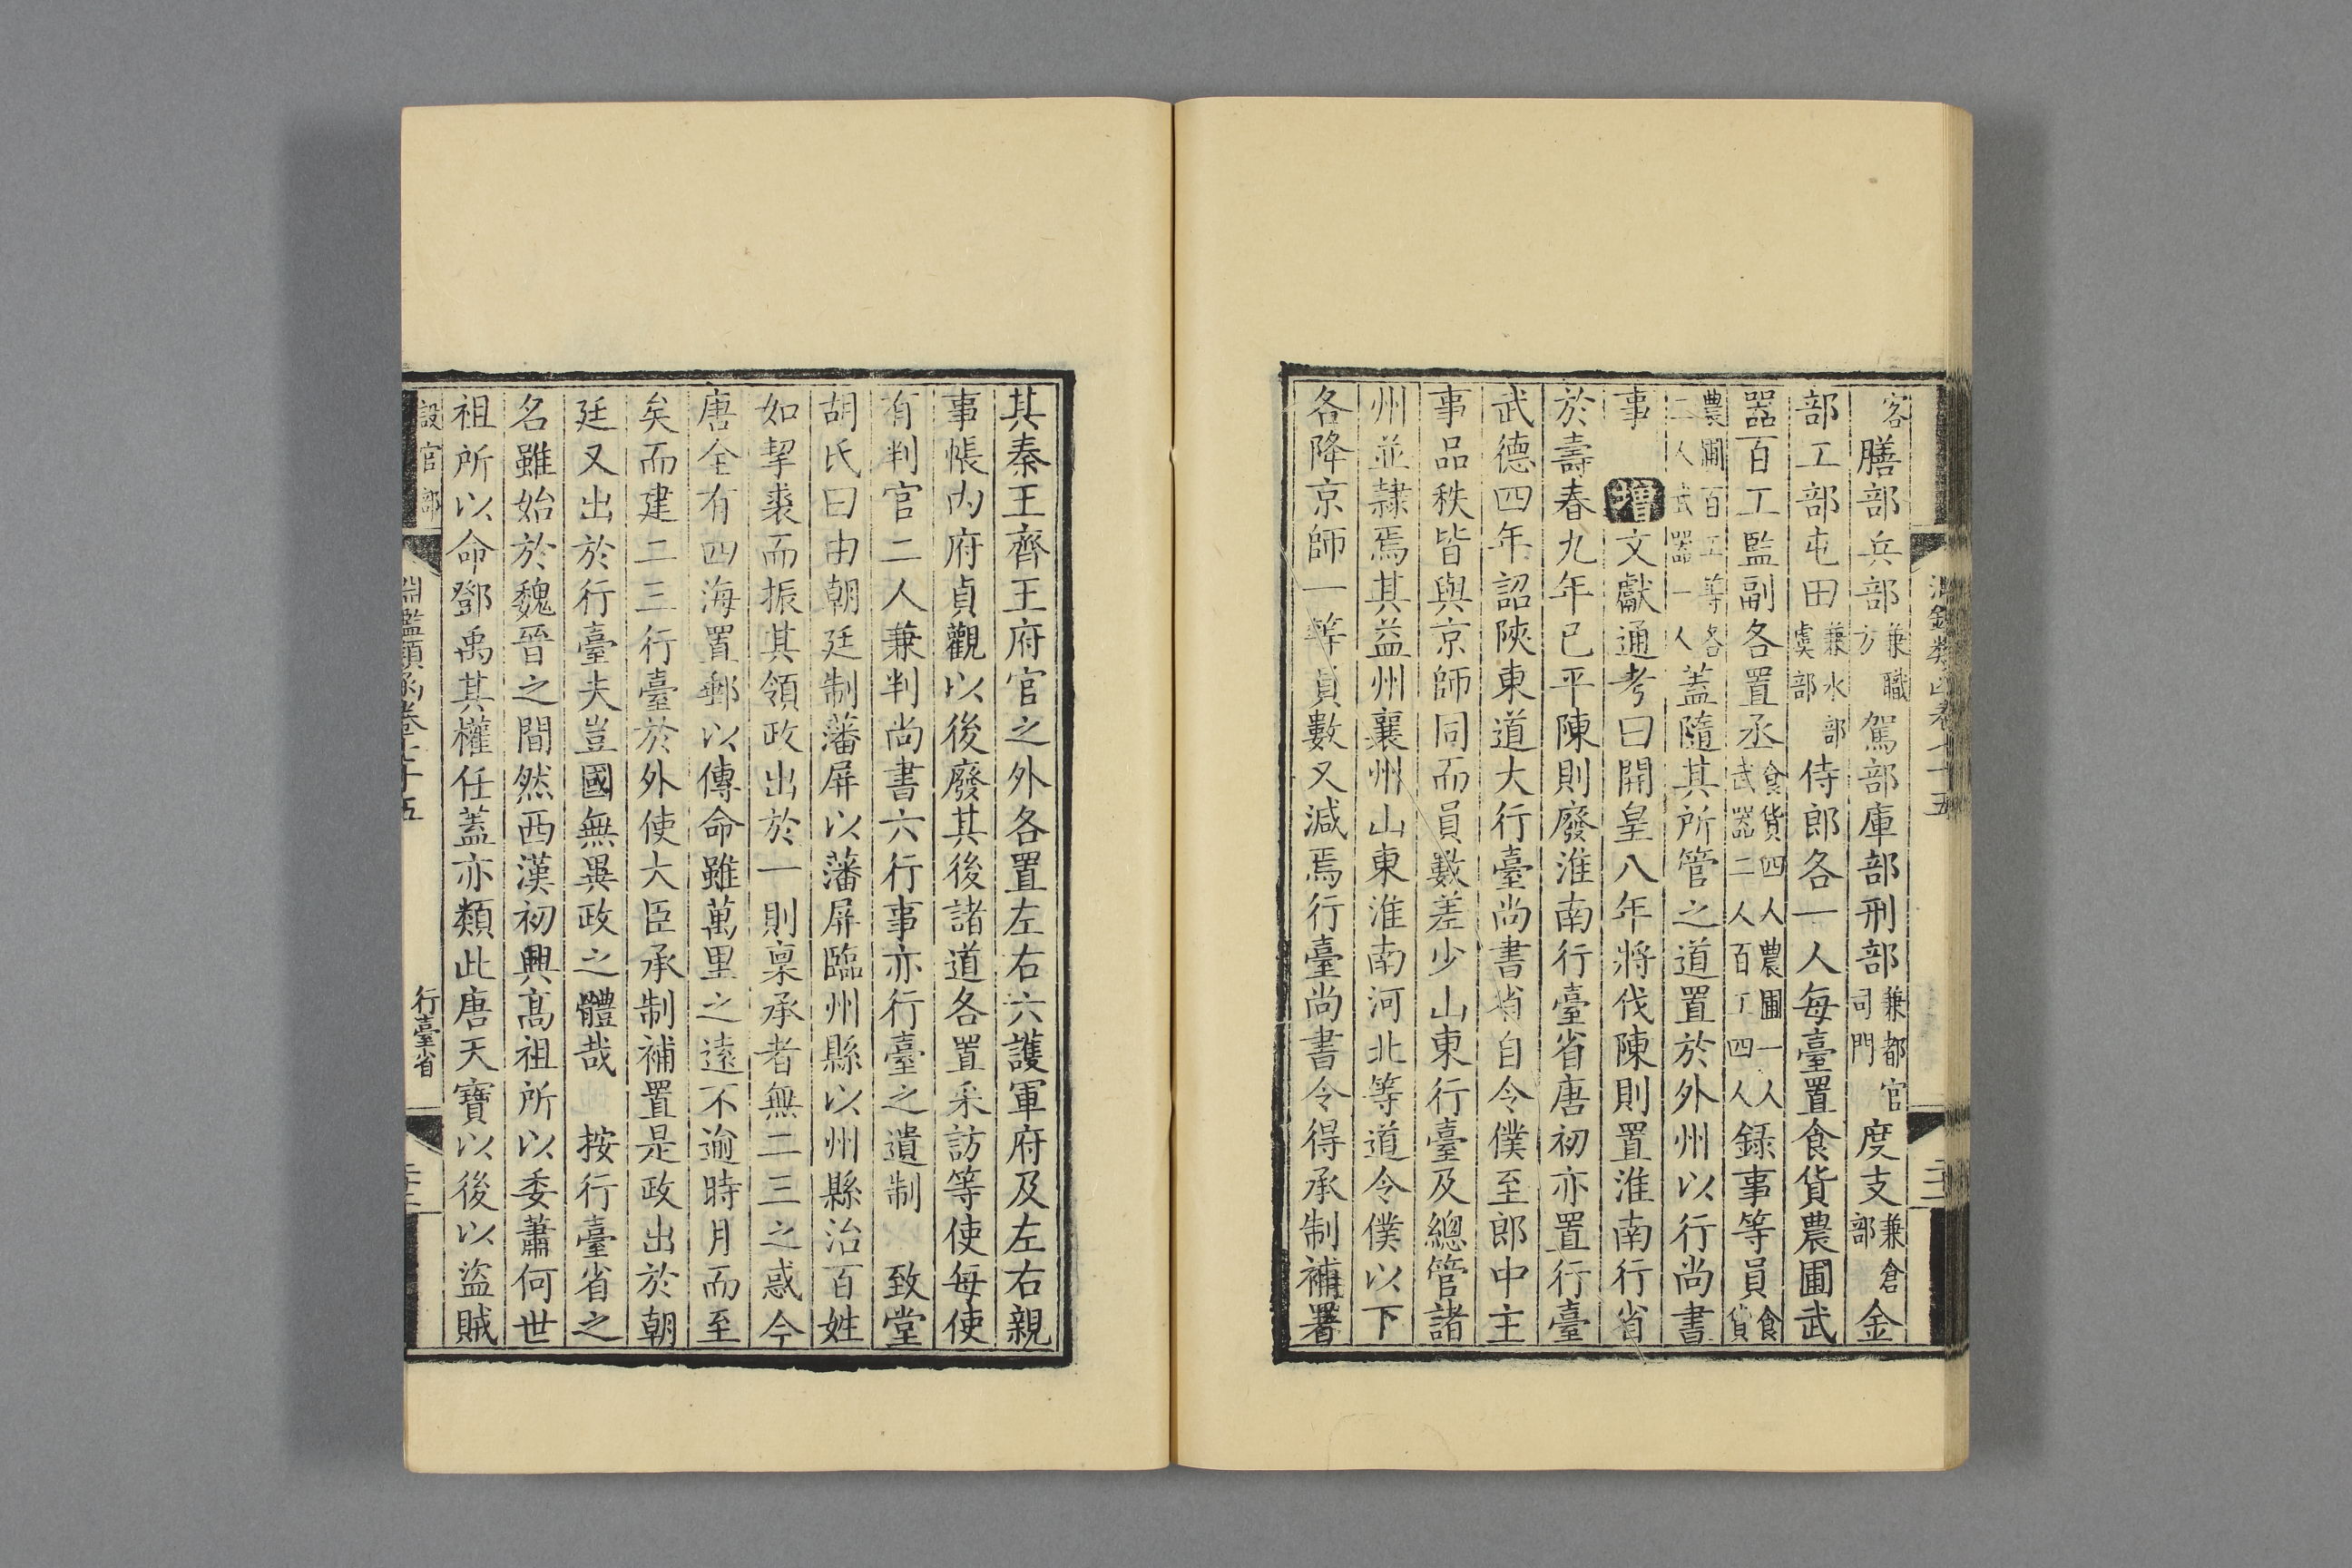 淵鑑類函卷七十五
客膳部兵部兼職方駕部庫部刑部兼都官司門度支兼倉部金
部工部屯田兼水部虞部侍郎各一人每臺置食貨農圃武
器百工監副各置丞食貨四人農圃一人武器二人百工四人錄事等員食貨
農圃百工等各二人武器一人蓋隨其所管之道置於外州以行尚書
事　增文獻通考曰開皇八年將伐陳則置淮南行省
於壽春九年已平陳則廢淮南行臺省唐初亦置行臺
武德四年詔陝東道大行臺尚書省自令僕至郎中主
事品秩皆與京師同而員數差少山東行臺及總管諸
州並隸焉其益州襄州山東淮南河北等道令僕以下
各降京師一等員數又減焉行臺尚書令得承制補署
其秦王齊王府官之外各置左右六護軍府及左右親
事帳內府貞觀以後廢其後諸道各置采訪等使每使
有判官二人兼判尚書六行事亦行臺之遺制　致堂
胡氏曰由朝廷制藩屏以藩屏臨州縣以州縣治百姓
如挈裘而振其領政出於一則稟承者無二三之惑今
唐全有四海置郵以傳命雖萬里之遠不逾時月而至
矣而建二三行臺於外使大臣承制補置是政出於朝
廷又出於行臺夫豈國無異政之體哉　按行臺省之
名雖始於魏晉之間然西漢初興高祖所以委蕭何世
祖所以命鄧禹其權任蓋亦類此唐天寶以後以盜賊
設官部　淵鑑類函卷七十五　行臺省